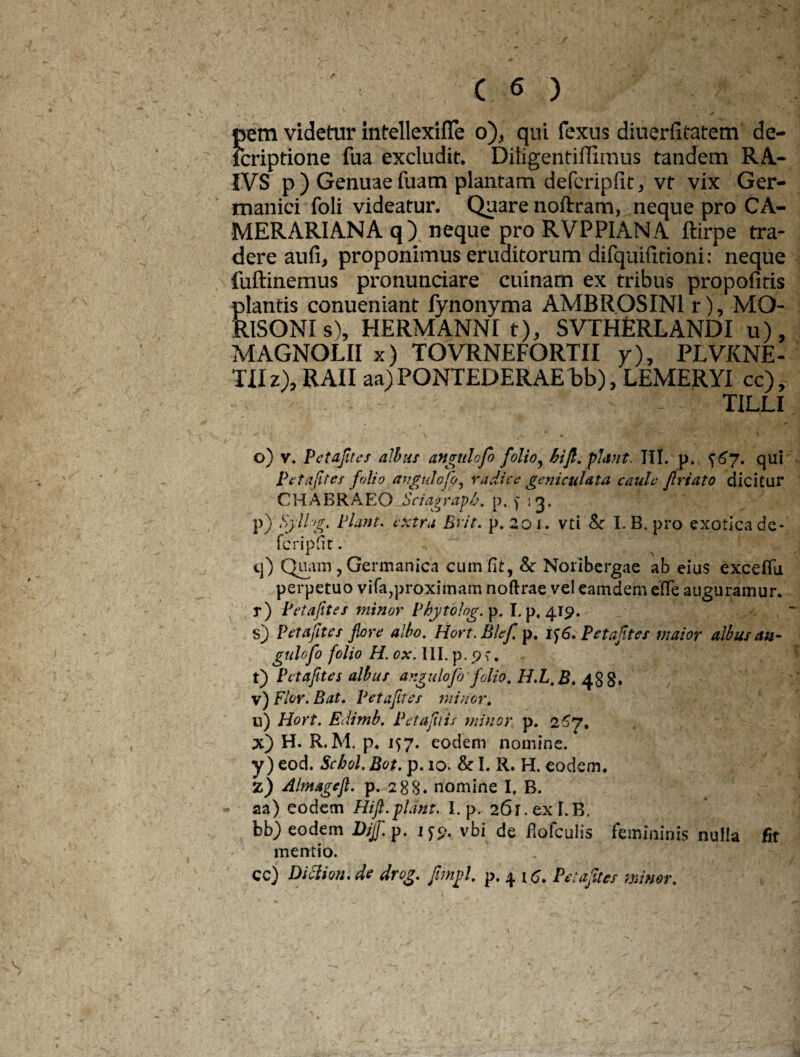 ( 6 )
pem videtur intellexiſſe o), qui ſexus diuerſitatem de-
ſcriptione ſua excludit. Diligentiſſimus tandem RA-
IVS p) Genuae ſuam plantam deſcripſit, vt vix Ger-
manici ſoli videatur. Quare noſtram, neque pro CA-
MERARIANA q) neque pro RVPPIANA ſtirpe tra-
dere auſi, proponimus eruditorum diſquiſitioni: neque
ſuſtinemus pronunciare cuinam ex tribus propoſitis
plantis conueniant ſynonyma AMBROSINI r), MO-
RISONI s), HERMANNI t), SVTHERLANDI u),
MAGNOLII x) TOVRNEFORTII y), PLVKNE-
TII z), RAII aa) PONTEDERAE bb), LEMERYI cc),
TILLI
o) v. Petaſites albus anguloſo folio, hiſt. plant. III. p. 567. qui
Petaſites folio anguloſo, radice geniculata caule ſtriato dicitur
CHABRAEO Sciagraph. p. 513.
p) Syllog. Plant. extra Brit. p. 201. vti & I. B. pro exotica de-
ſcripſit.
q) Quam, Germanica cum ſit, & Noribergae ab eius exceſſu
perpetuo viſa, proximam noſtrae vel eamdem eſſe auguramur.
r) Petaſites minor Phytolog. p. I. p. 419.
s) Petaſites flore albo. Hort. Bleſ. p. 156. Petaſites maior albus an-
guloſo folio H. ox. III. p. 95.
t) Petaſites albus anguloſo folio. H.L.B. 488.
v) Flor. Bat. Petaſites minor.
u) Hort. Edimb. Petaſitis minor p. 267.
x) H. R. M. p. 157. eodem nomine.
y) eod. Schol. Bot. p. 10. & I. R. H. eodem.
z) Almageſt. p. 288. nomine I. B.
aa) eodem Hiſt. plant. I. p. 261. ex I. B.
bb) eodem Diſſ. p. 159. vbi de floſculis femininis nulla fit
mentio.
cc) Diction. de drog. ſimpl. p. 416. Petaſites minor.